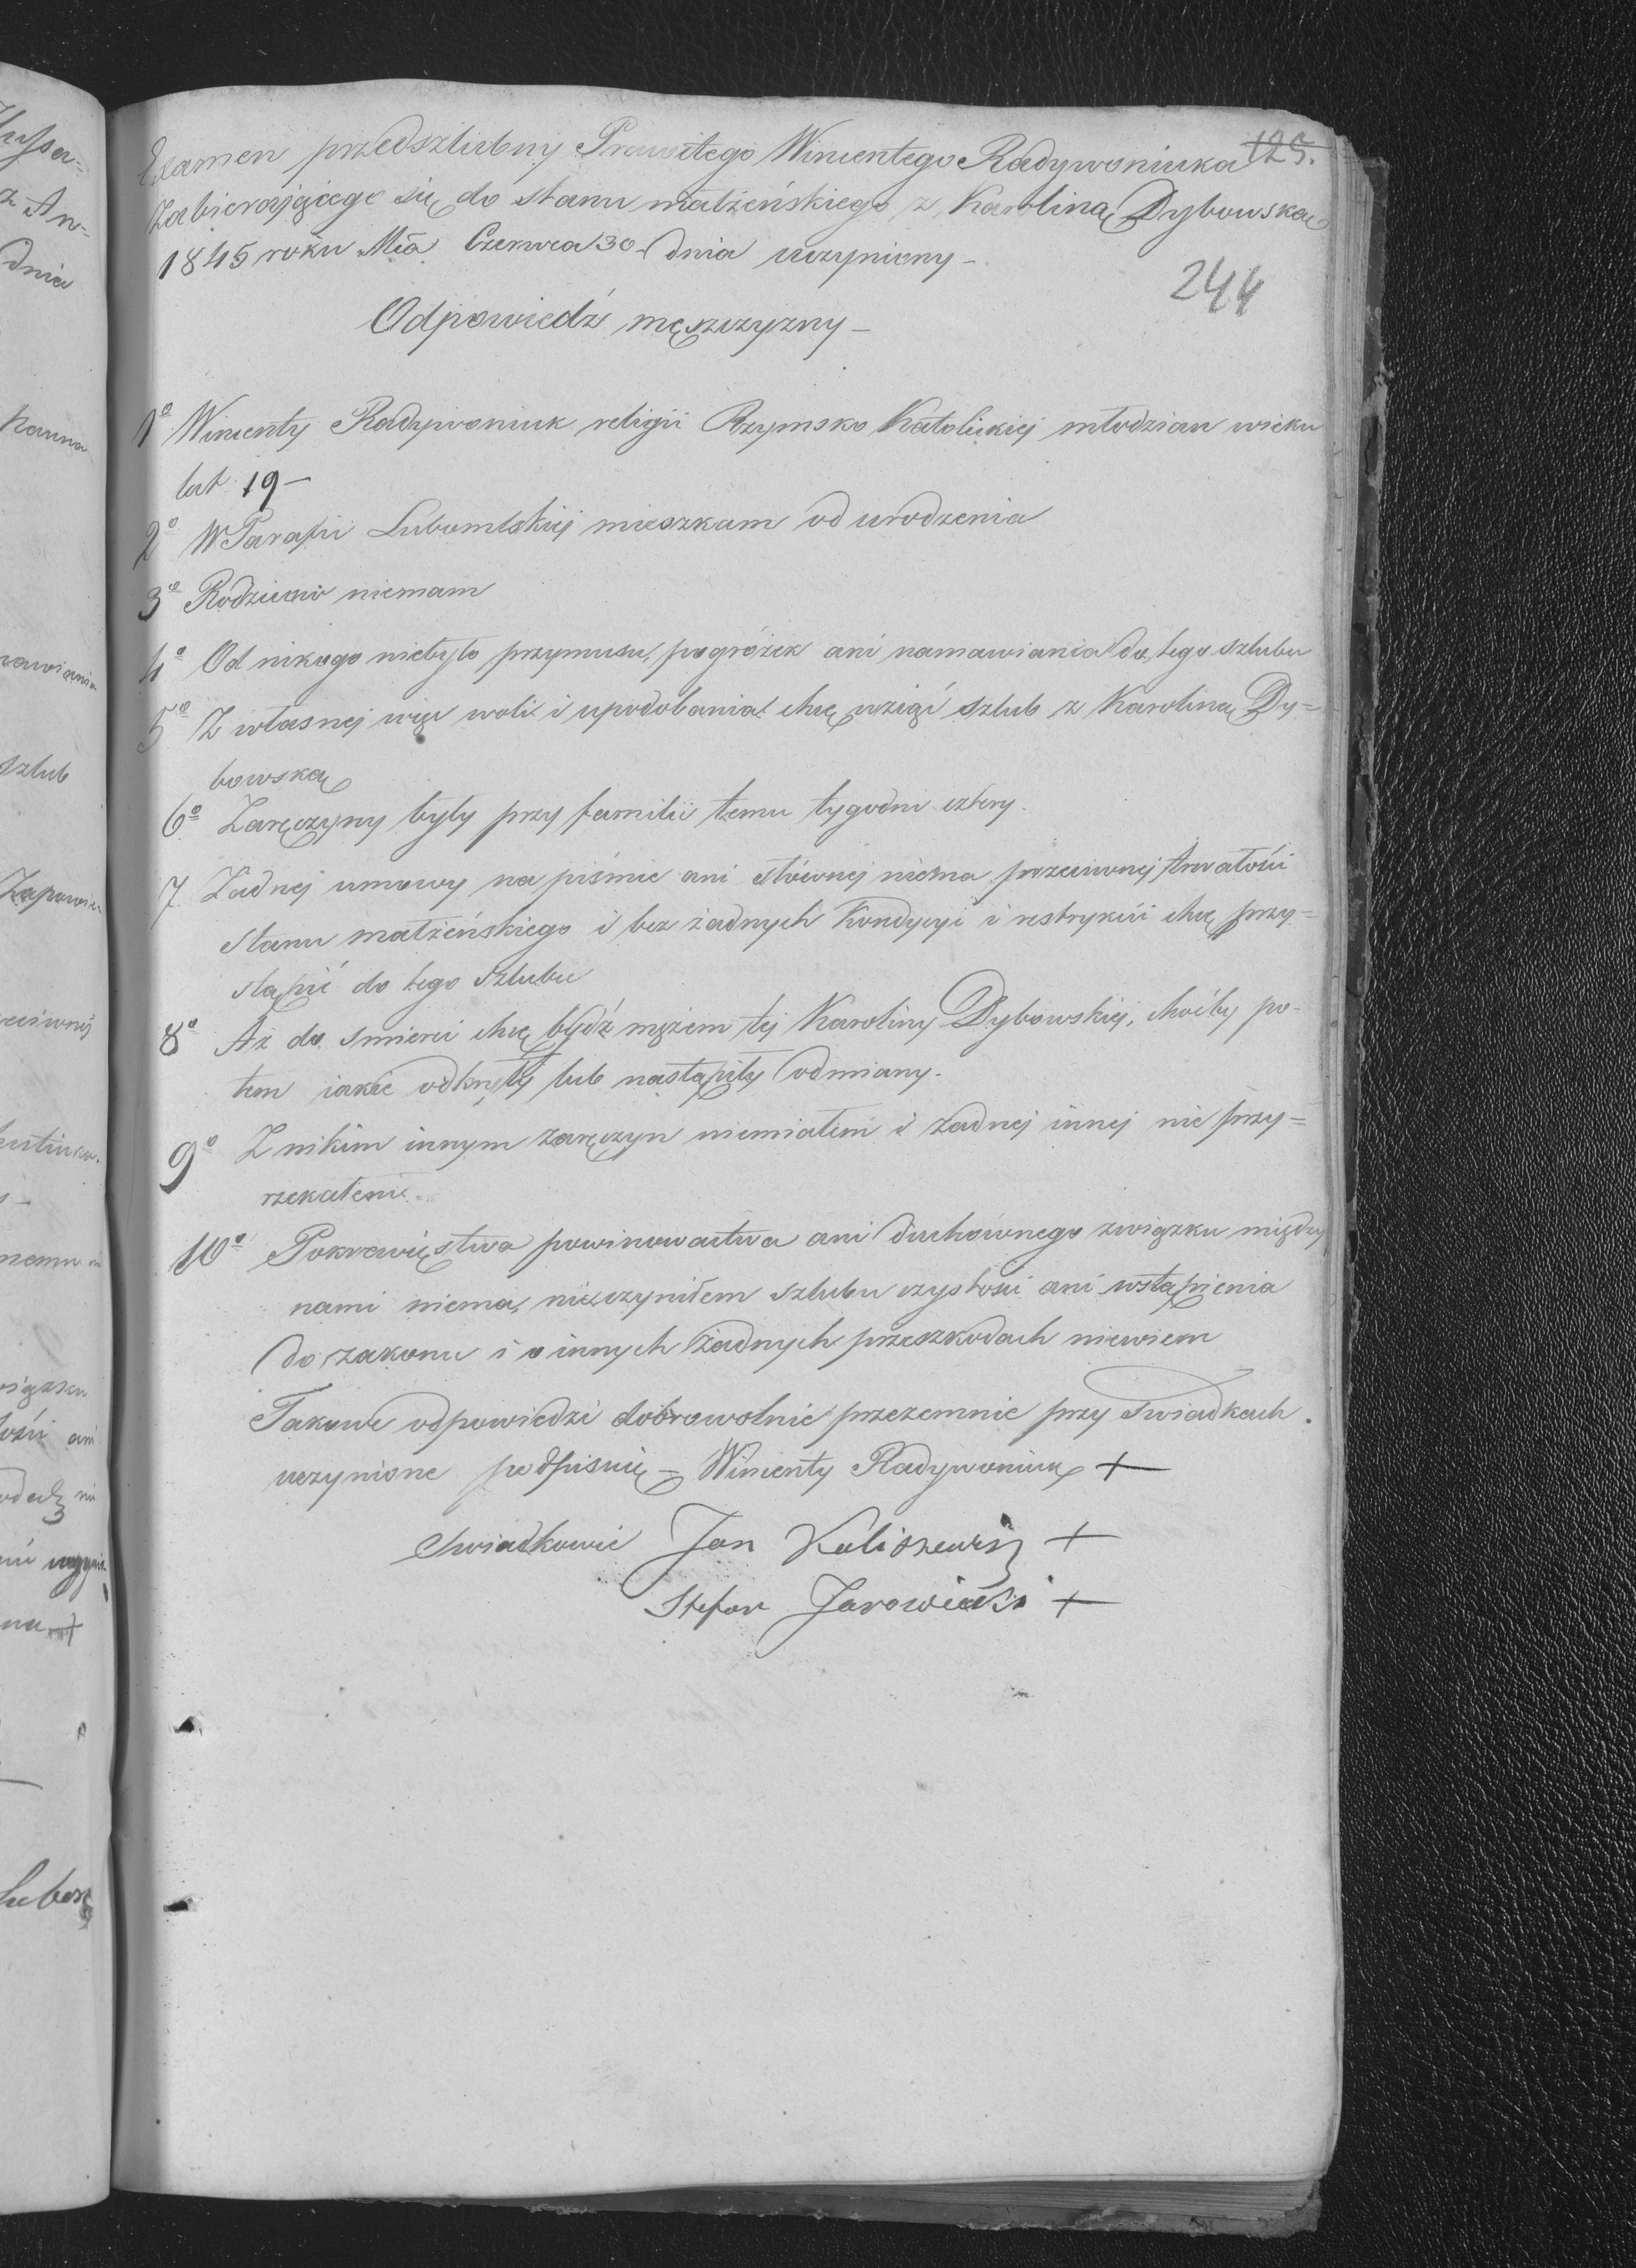 Examen przedszlubny Prawitego Wincentego Radywoniuka 125.
Zabierającego się do stanu małżeńskiego z Karoliną Dybowską
1845 roku Mca Czerwca 30 dnia uczyniony –
244
Odpowiedź męszczyzny –
1o Wincenty Radywoniuk religii Rzymsko Katolickiej młodzian wieku
lat 19 –
2o W Parafii Lubomlskiej mieszkam od urodzenia
3o Rodziców niemam
4o Od nikogo niebyło przymusu, pogróżek ani namawiania do tego szlubu
5o Z własnej więc woli i upodobania chcę wziąć szlub z Karoliną Dy=
bowską
6o Zaręczyny były przy familii temu tygodni cztery.
7 Żadnej umowy na piśmie ani słównej niema przeciwnej trwałości
stanu małżeńskiego i bez żadnych Kondycyi i restrykcii chcę przy=
stąpić do tego szlubu
8o Aż do smierci chcę bydź mężem tej Karoliny Dybowskiej, choćby po-
tem iakie odkryły lub nastąpiły odmiany.
9o Z nikim innym zaręczyn niemiałem i żadnej innej nie przy=
rzekałem.
10o Pokrewięstwa powinowactwa ani duchównego związku między
nami niema, nieczyniłem szlubu czystości ani wstąpienia
do zakonu i o innych żadnych przeszkodach niewiem
Takowe odpowiedzi dobrowolnie przezemnie przy Swiadkach
uczynione podpisuię – Wincenty Radywoniuk +
Swiadkowie Jan Kaliszewicz +
Stefan Jarowicki +